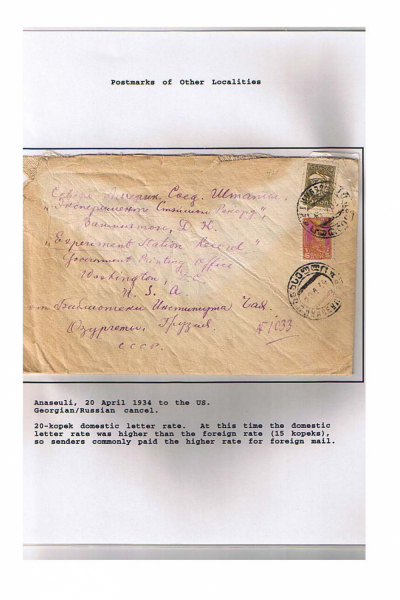 Postmarks of Other Localities
Северо Америк Соед. Штаты,
"Экспериент Стэйшон Рекорд"
Вашингтон, Д. К.
"Experiment Station Record"
Government Printing Office
Washington, D.C.
U. S. A.
от Библиотеки Института Чая.
Озургеты, Грузия
СССР.
№1033
Anaseuli, 20 April 1934 to the US.
Georgian/Russian cancel.
20-kopek domestic letter rate. At this time the domestic
letter rate was higher than the foreign rate (15 kopeks),
so senders commonly paid the higher rate for foreign mail.